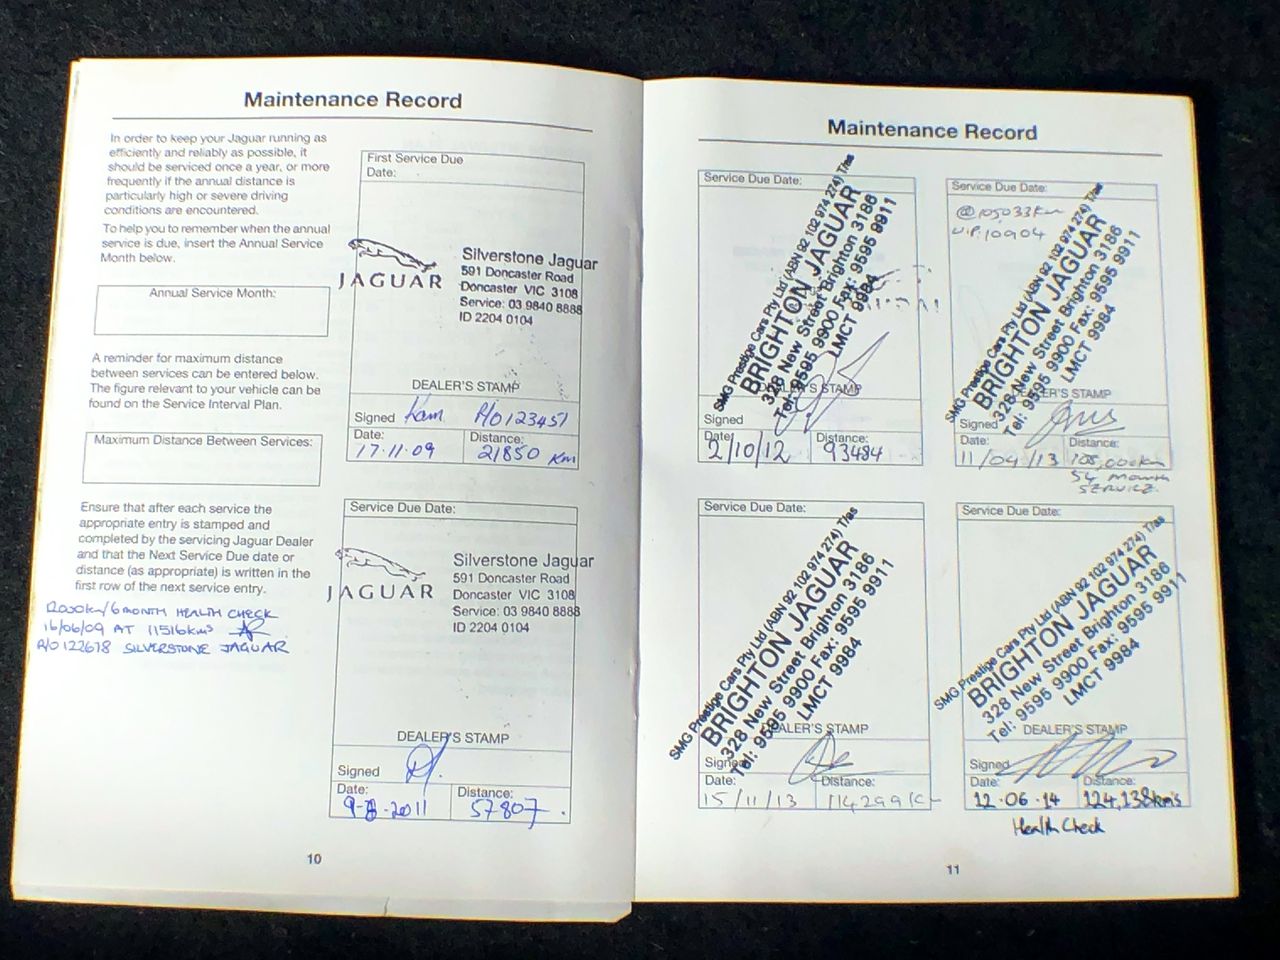 Maintenance Record
In order to keep your Jaguar running as
efficiently and reliably as possible, it
should be serviced once a year, or more
frequently if the annual distance is
particularly high or severe driving
conditions are encountered.
To help you to remember when the annual
service is due, insert the Annual Service
Month below.
Annual Service Month:
A reminder for maximum distance
between services can be entered below.
The figure relevant to your vehicle can be
found on the Service Interval Plan.
Maximum Distance Between Services:
Ensure that after each service the
appropriate entry is stamped and
completed by the servicing Jaguar Dealer
and that the Next Service Due date or
distance (as appropriate) is written in the
first row of the next service entry.
/6 MONTH HEALTH CHECK
16/06/09 AT 11516kms
R/O 122678 SILVERSTONE JAGUAR
First Service Due
Date:
JAGUAR
Silverstone Jaguar
591 Doncaster Road
Doncaster VIC 3108
Service: 03 9840 8888
ID 2204 0104
DEALER'S STAMP
Signed R/O 123451
Date: Distance:
17.11.09 21850 km
Service Due Date:
JAGUAR
Silverstone Jaguar
591 Doncaster Road
Doncaster VIC 3108
Service: 03 9840 8888
ID 2204 0104
DEALER'S STAMP
Signed
Date: Distance:
2011 57807
10
Maintenance Record
Service Due Date:
SMG Prestige Cars Pty Ltd (ABN 92 102 974 274) T/as
BRIGHTON JAGUAR
328 New Street Brighton 3186
Tel: 9595 9900 Fax: 9595 9911
LMCT 9984
DEALER'S STAMP
Signed
Date: Distance:
2/10/12 93484
Service Due Date:
@105033km
10904
SMG Prestige Cars Pty Ltd (ABN 92 102 974 274) T/as
BRIGHTON JAGUAR
328 New Street Brighton 3186
Tel: 9595 9900 Fax: 9595 9911
LMCT 9984
DEALER'S STAMP
Signed
Date: Distance:
11/04/13 105,000km
54 month
SERVICE.
Service Due Date:
SMG Prestige Cars Pty Ltd (ABN 92 102 974 274) T/as
BRIGHTON JAGUAR
328 New Street Brighton 3186
Tel: 9595 9900 Fax: 9595 9911
LMCT 9984
DEALER'S STAMP
Signed
Date: Distance:
15/11/13 114299
Service Due Date:
SMG Prestige Cars Pty Ltd (ABN 92 102 974 274) T/as
BRIGHTON JAGUAR
328 New Street Brighton 3186
Tel: 9595 9900 Fax: 9595 9911
LMCT 9984
DEALER'S STAMP
Signed
Date: Distance:
12.06.14 124,138kms
Health Check
11